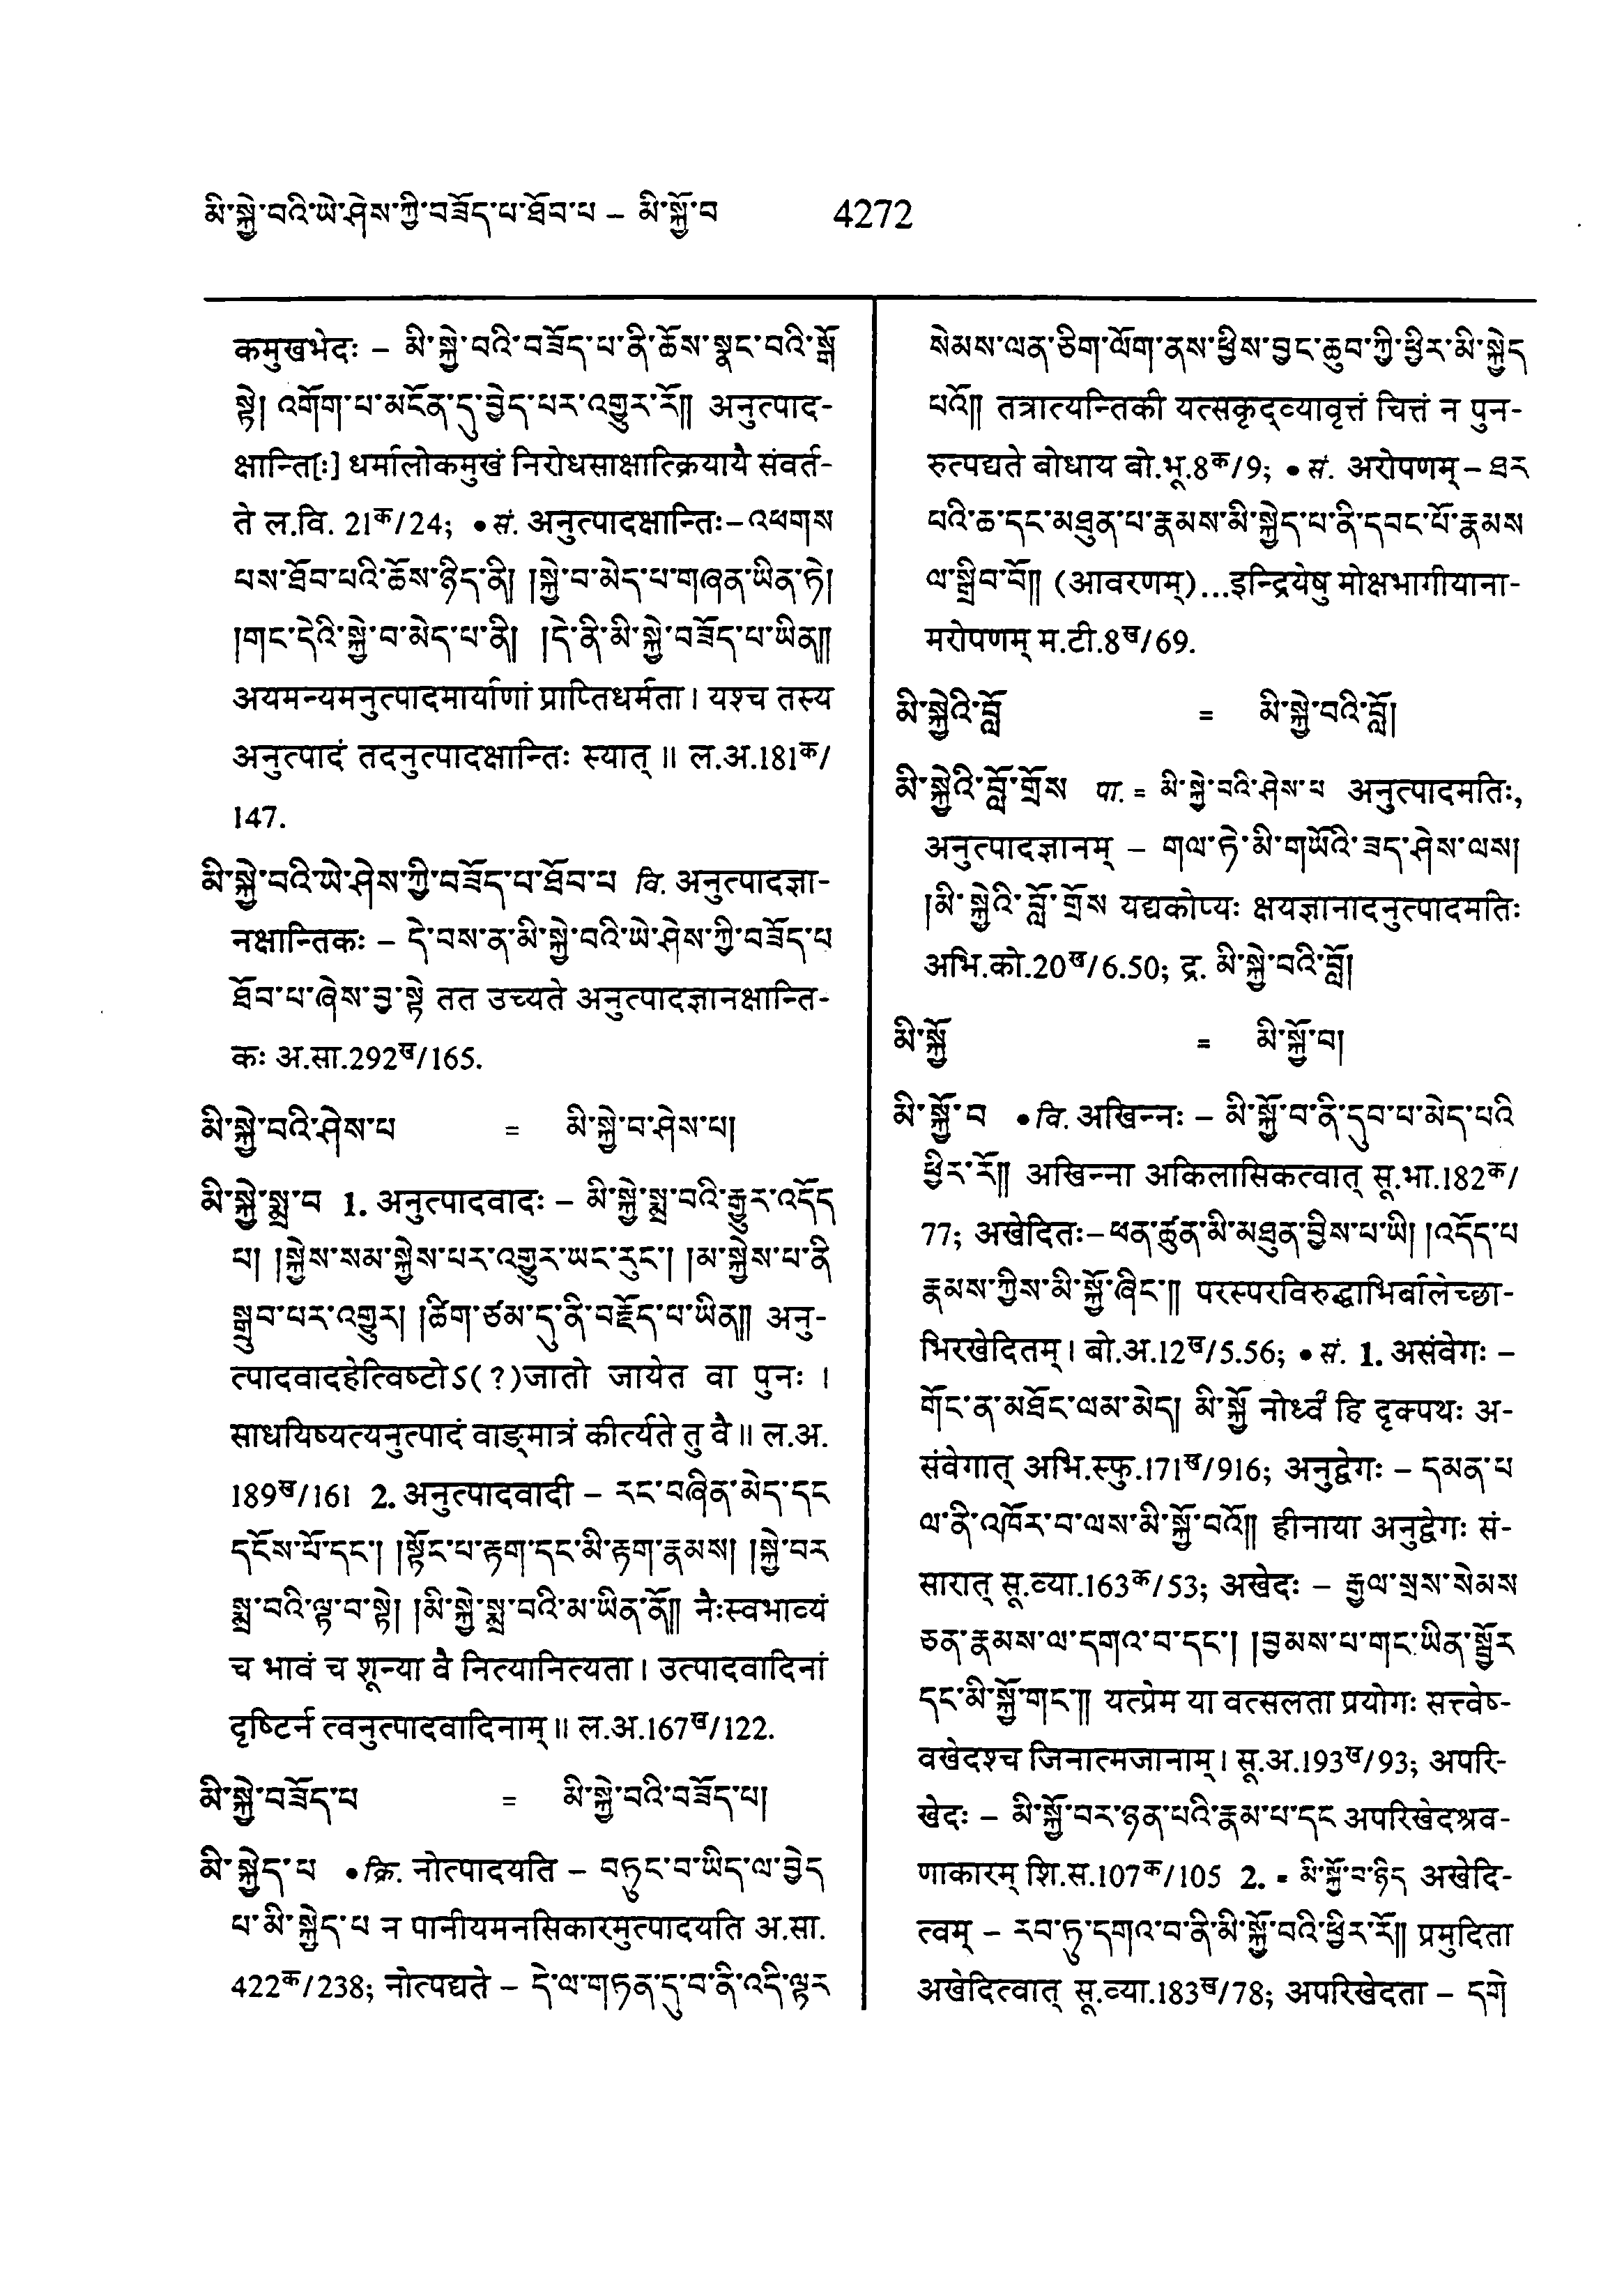 མི་སྐྱེ་བའི་ཡེ་ཤེས་ཀྱི་བཟོད་པ་ཐོབ་པ – མི་སྐྱོ་བ 4272
कमुखभेदः – མི་སྐྱེ་བའི་བཟོད་པ་ནི་ཆོས་སྣང་བའི་སྒོ
སྟེ། འགོག་པ་མངོན་དུ་བྱེད་པར་འགྱུར་རོ༎ अनुत्पाद-
क्षान्ति[ः] धर्मालोकमुखं निरोधसाक्षात्क्रियायै संवर्त-
ते ल.वि. 21क/24; • सं. अनुत्पादक्षान्तिः – འཕགས
པས་ཐོབ་པའི་ཆོས་ཉིད་ནི། །སྐྱེ་བ་མེད་པ་གཞན་ཡིན་ཏེ།
།གང་དེའི་སྐྱེ་བ་མེད་པ་ནི། །དེ་ནི་མི་སྐྱེ་བཟོད་པ་ཡིན༎
अयमन्यमनुत्पादमार्याणां प्राप्तिधर्मता। यश्च तस्य
अनुत्पादं तदनुत्पादक्षान्तिः स्यात्॥ ल.अ.181क/
147.
མི་སྐྱེ་བའི་ཡེ་ཤེས་ཀྱི་བཟོད་པ་ཐོབ་པ वि. अनुत्पादज्ञा-
नक्षान्तिकः – དེ་བས་ན་མི་སྐྱེ་བའི་ཡེ་ཤེས་ཀྱི་བཟོད་པ
ཐོབ་པ་ཞེས་བྱ་སྟེ तत उच्यते अनुत्पादज्ञानक्षान्ति-
कः अ.सा.292ख/165.
མི་སྐྱེ་བའི་ཤེས་པ = མི་སྐྱེ་བ་ཤེས་པ།
མི་སྐྱེ་སྨྲ་བ 1. अनुत्पादवादः – མི་སྐྱེ་སྨྲ་བའི་རྒྱུར་འདོད
པ། །སྐྱེས་སམ་སྐྱེས་པར་འགྱུར་ཡང་རུང་། །མ་སྐྱེས་པ་ནི
སྒྲུབ་པར་འགྱུར། །ཚིག་ཙམ་དུ་ནི་བརྗོད་པ་ཡིན༎ अनु-
त्पादवादहेत्विष्टोऽ(?)जातो जायेत वा पुनः।
साधयिष्यत्यनुत्पादं वाङ्मात्रं कीर्त्यते तु वै॥ ल.अ.
189ख/161 2. अनुत्पादवादी – རང་བཞིན་མེད་དང
དངོས་པོ་དང་། །སྟོང་པ་རྟག་དང་མི་རྟག་རྣམས། །སྐྱེ་བར
སྨྲ་བའི་ལྟ་བ་སྟེ། །མི་སྐྱེ་སྨྲ་བའི་མ་ཡིན་ནོ༎ नैःस्वभाव्यं
च भावं च शून्या वै नित्यानित्यता। उत्पादवादिनां
दृष्टिर्न त्वनुत्पादवादिनाम्॥ ल.अ.167ख/122.
མི་སྐྱེ་བཟོད་པ = མི་སྐྱེ་བའི་བཟོད་པ།
མི་སྐྱེད་པ • क्रि. नोत्पादयति – བཏུང་བ་ཡིད་ལ་བྱེད
པ་མི་སྐྱེད་པ न पानीयमनसिकारमुत्पादयति अ.सा.
422क/238; नोत्पद्यते – དེ་ལ་གཏན་དུ་བ་ནི་འདི་ལྟར
སེམས་ལན་ཅིག་ལོག་ནས་ཕྱིས་བྱང་ཆུབ་ཀྱི་ཕྱིར་མི་སྐྱེད
པའོ༎ तत्रात्यन्तिकी यत्सकृद्व्यावृत्तं चित्तं न पुन-
रुत्पद्यते बोधाय बो.भू.8क/9; • सं. अरोपणम् – ཐར
བའི་ཆ་དང་མཐུན་པ་རྣམས་མི་སྐྱེད་པ་ནི་དབང་པོ་རྣམས
ལ་སྒྲིབ་བོ༎ (आवरणम्)...इन्द्रियेषु मोक्षभागीयाना-
मरोपणम् म.टी.8ख/69.
མི་སྐྱེའི་བློ = མི་སྐྱེ་བའི་བློ།
མི་སྐྱེའི་བློ་གྲོས पा. = མི་སྐྱེ་བའི་ཤེས་པ अनुत्पादमतिः,
अनुत्पादज्ञानम् – གལ་ཏེ་མི་གཡོའི་ཟད་ཤེས་ལས།
།མི་སྐྱེའི་བློ་གྲོས यद्यकोप्यः क्षयज्ञानादनुत्पादमतिः
अभि.को.20ख/6.50; द्र. མི་སྐྱེ་བའི་བློ།
མི་སྐྱོ = མི་སྐྱོ་བ།
མི་སྐྱོ་བ • वि. अखिन्नः – མི་སྐྱོ་བ་ནི་དུབ་པ་མེད་པའི
ཕྱིར་རོ༎ अखिन्ना अकिलासिकत्वात् सू.भा.182क/
77; अखेदितः – ཕན་ཚུན་མི་མཐུན་བྱིས་པ་ཡི། །འདོད་པ
རྣམས་ཀྱིས་མི་སྐྱོ་ཞིང་༎ परस्परविरुद्धाभिर्बालेच्छा-
भिरखेदितम्। बो.अ.12ख/5.56; • सं. 1. असंवेगः –
གོང་ན་མཐོང་ལམ་མེད། མི་སྐྱོ नोर्ध्वं हि दृक्पथः अ-
संवेगात् अभि.स्फु.171ख/916; अनुद्वेगः – དམན་པ
ལ་ནི་འཁོར་བ་ལས་མི་སྐྱོ་བའོ༎ हीनाया अनुद्वेगः सं-
सारात् सू.व्या.163क/53; अखेदः – རྒྱལ་སྲས་སེམས
ཅན་རྣམས་ལ་དགའ་བ་དང་། །བྱམས་པ་གང་ཡིན་སྦྱོར
དང་མི་སྐྱོ་གང་༎ यत्प्रेम या वत्सलता प्रयोगः सत्त्वेष्-
वखेदश्च जिनात्मजानाम्। सू.अ.193ख/93; अपरि-
खेदः – མི་སྐྱོ་བར་ཉན་པའི་རྣམ་པ་དང अपरिखेदश्रव-
णाकारम् शि.स.107क/105 2. = མི་སྐྱོ་བ་ཉིད अखेदि-
त्वम् – རབ་ཏུ་དགའ་བ་ནི་མི་སྐྱོ་བའི་ཕྱིར་རོ༎ प्रमुदिता
अखेदित्वात् सू.व्या.183ख/78; अपरिखेदता – དགེ